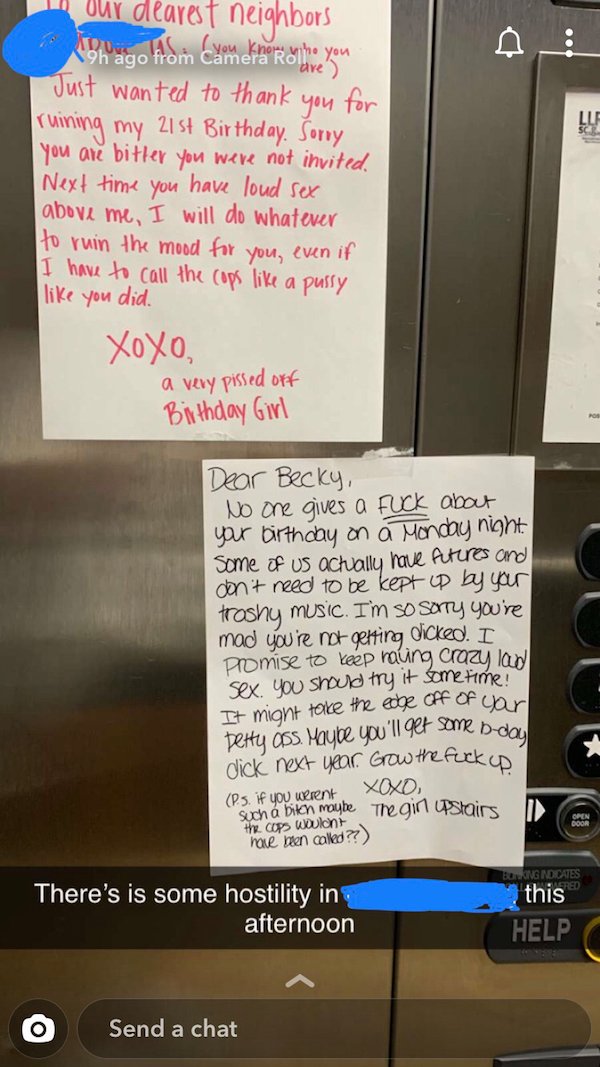 To our dearest neighbors
above us: (you know who you
are)
9h ago from Camera Roll
Just wanted to thank you for
ruining my 21st Birthday. Sorry
you are bitter you were not invited.
Next time you have loud sex
above me, I will do whatever
to ruin the mood for you, even if
I have to call the cops like a pussy
like you did.
XOXO,
a very pissed off
Birthday Girl
Dear Becky,
No one gives a FUCK about
your birthday on a Monday night.
Some of us actually have futures and
don't need to be kept up by your
trashy music. I'm so sorry you're
mad you're not getting dicked. I
promise to keep having crazy loud
sex. You should try it sometime!
It might take the edge off of your
petty ass. Maybe you'll get some b-day
dick next year. Grow the fuck up.
XOXO,
The girl upstairs
(P.S. if you werent
such a bitch maybe
the cops wouldnt
have been called??)
OPEN
DOOR
INDICATES
HELP
There's is some hostility in
this
afternoon
Send a chat